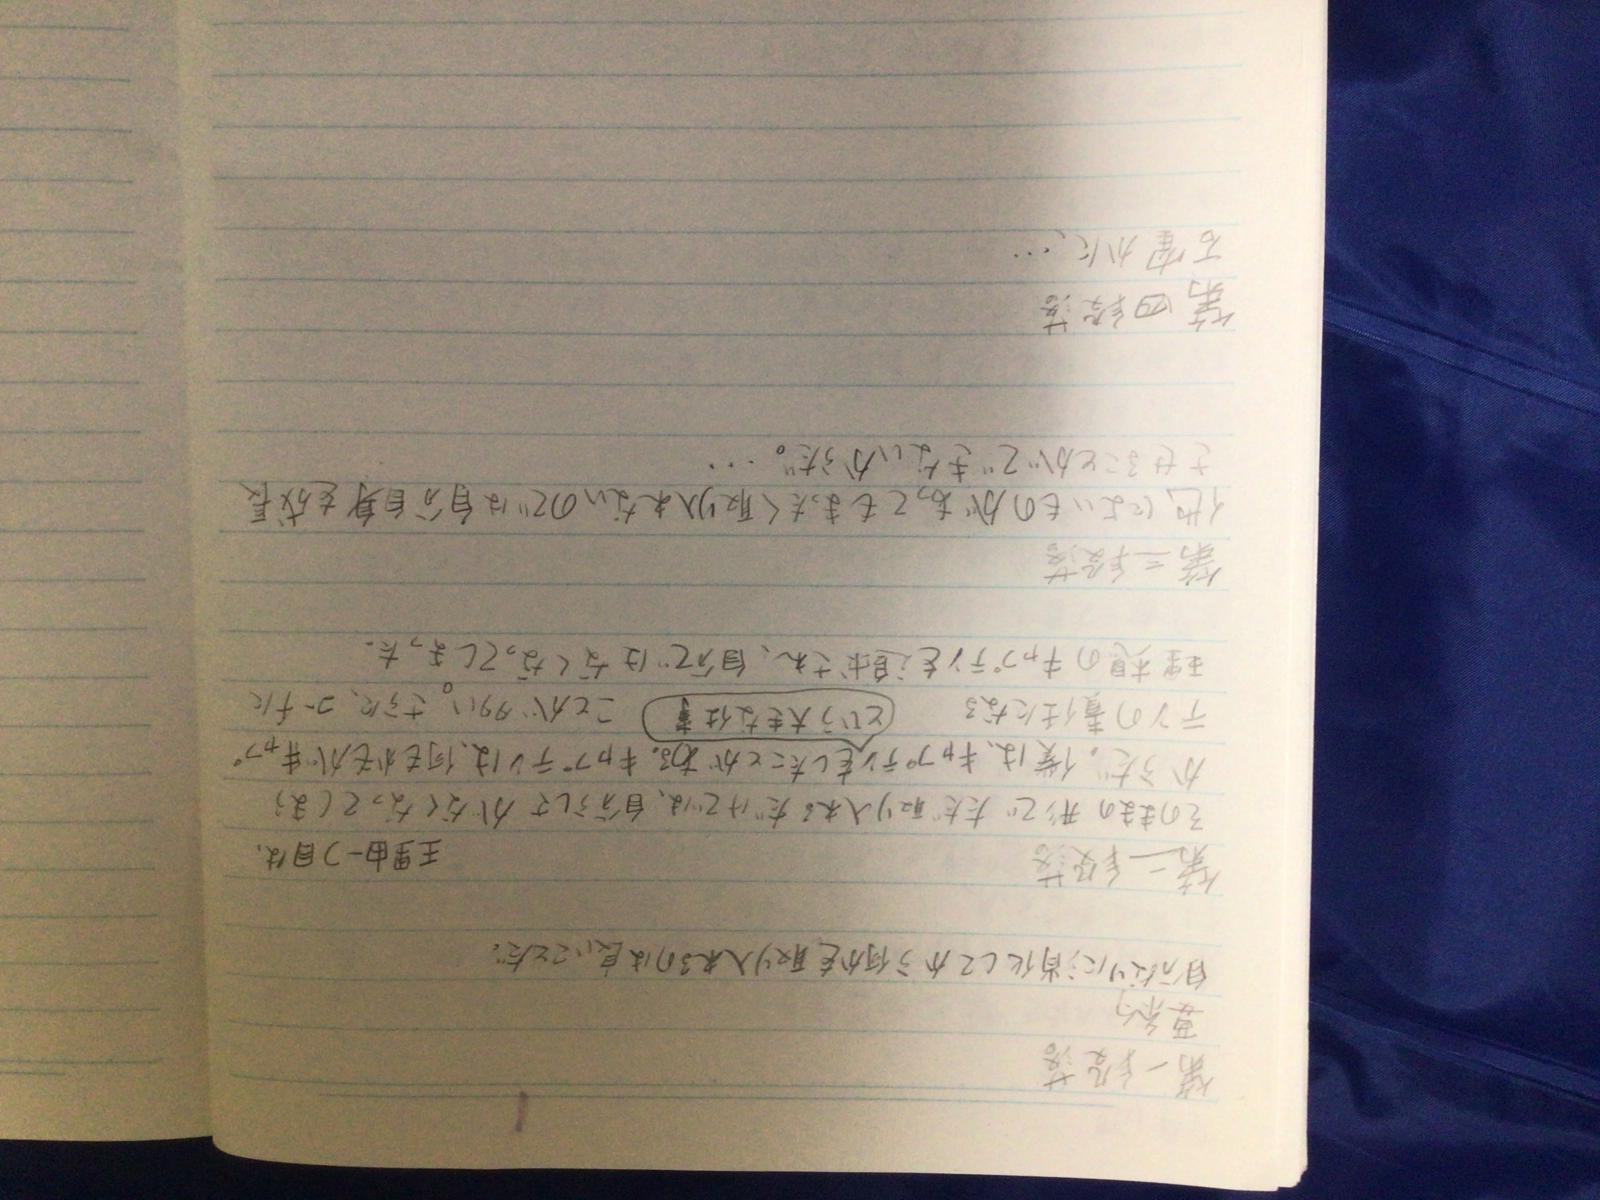 第一段落
要約
自分なりに消化してから何かを取り入れるのは良いことだ。
第二段落
理由一つ目は、
そのままの形でただ取り入れるだけでは、自分らしてがなくなってしまう
からだ。僕は、キャプテンをしたことがある。キャプテンは、何をやるかがキャプ
テンの責任になる
という大きな仕事
ことが多い。さらに、コーチに
理想のキャプテンを追求され、自分ではなくなってしまった.
第三段落
他によいものがあってもまったく取り入れないのでは自分自身を成長
させることができないからだ。…
第四段落
確かに、…